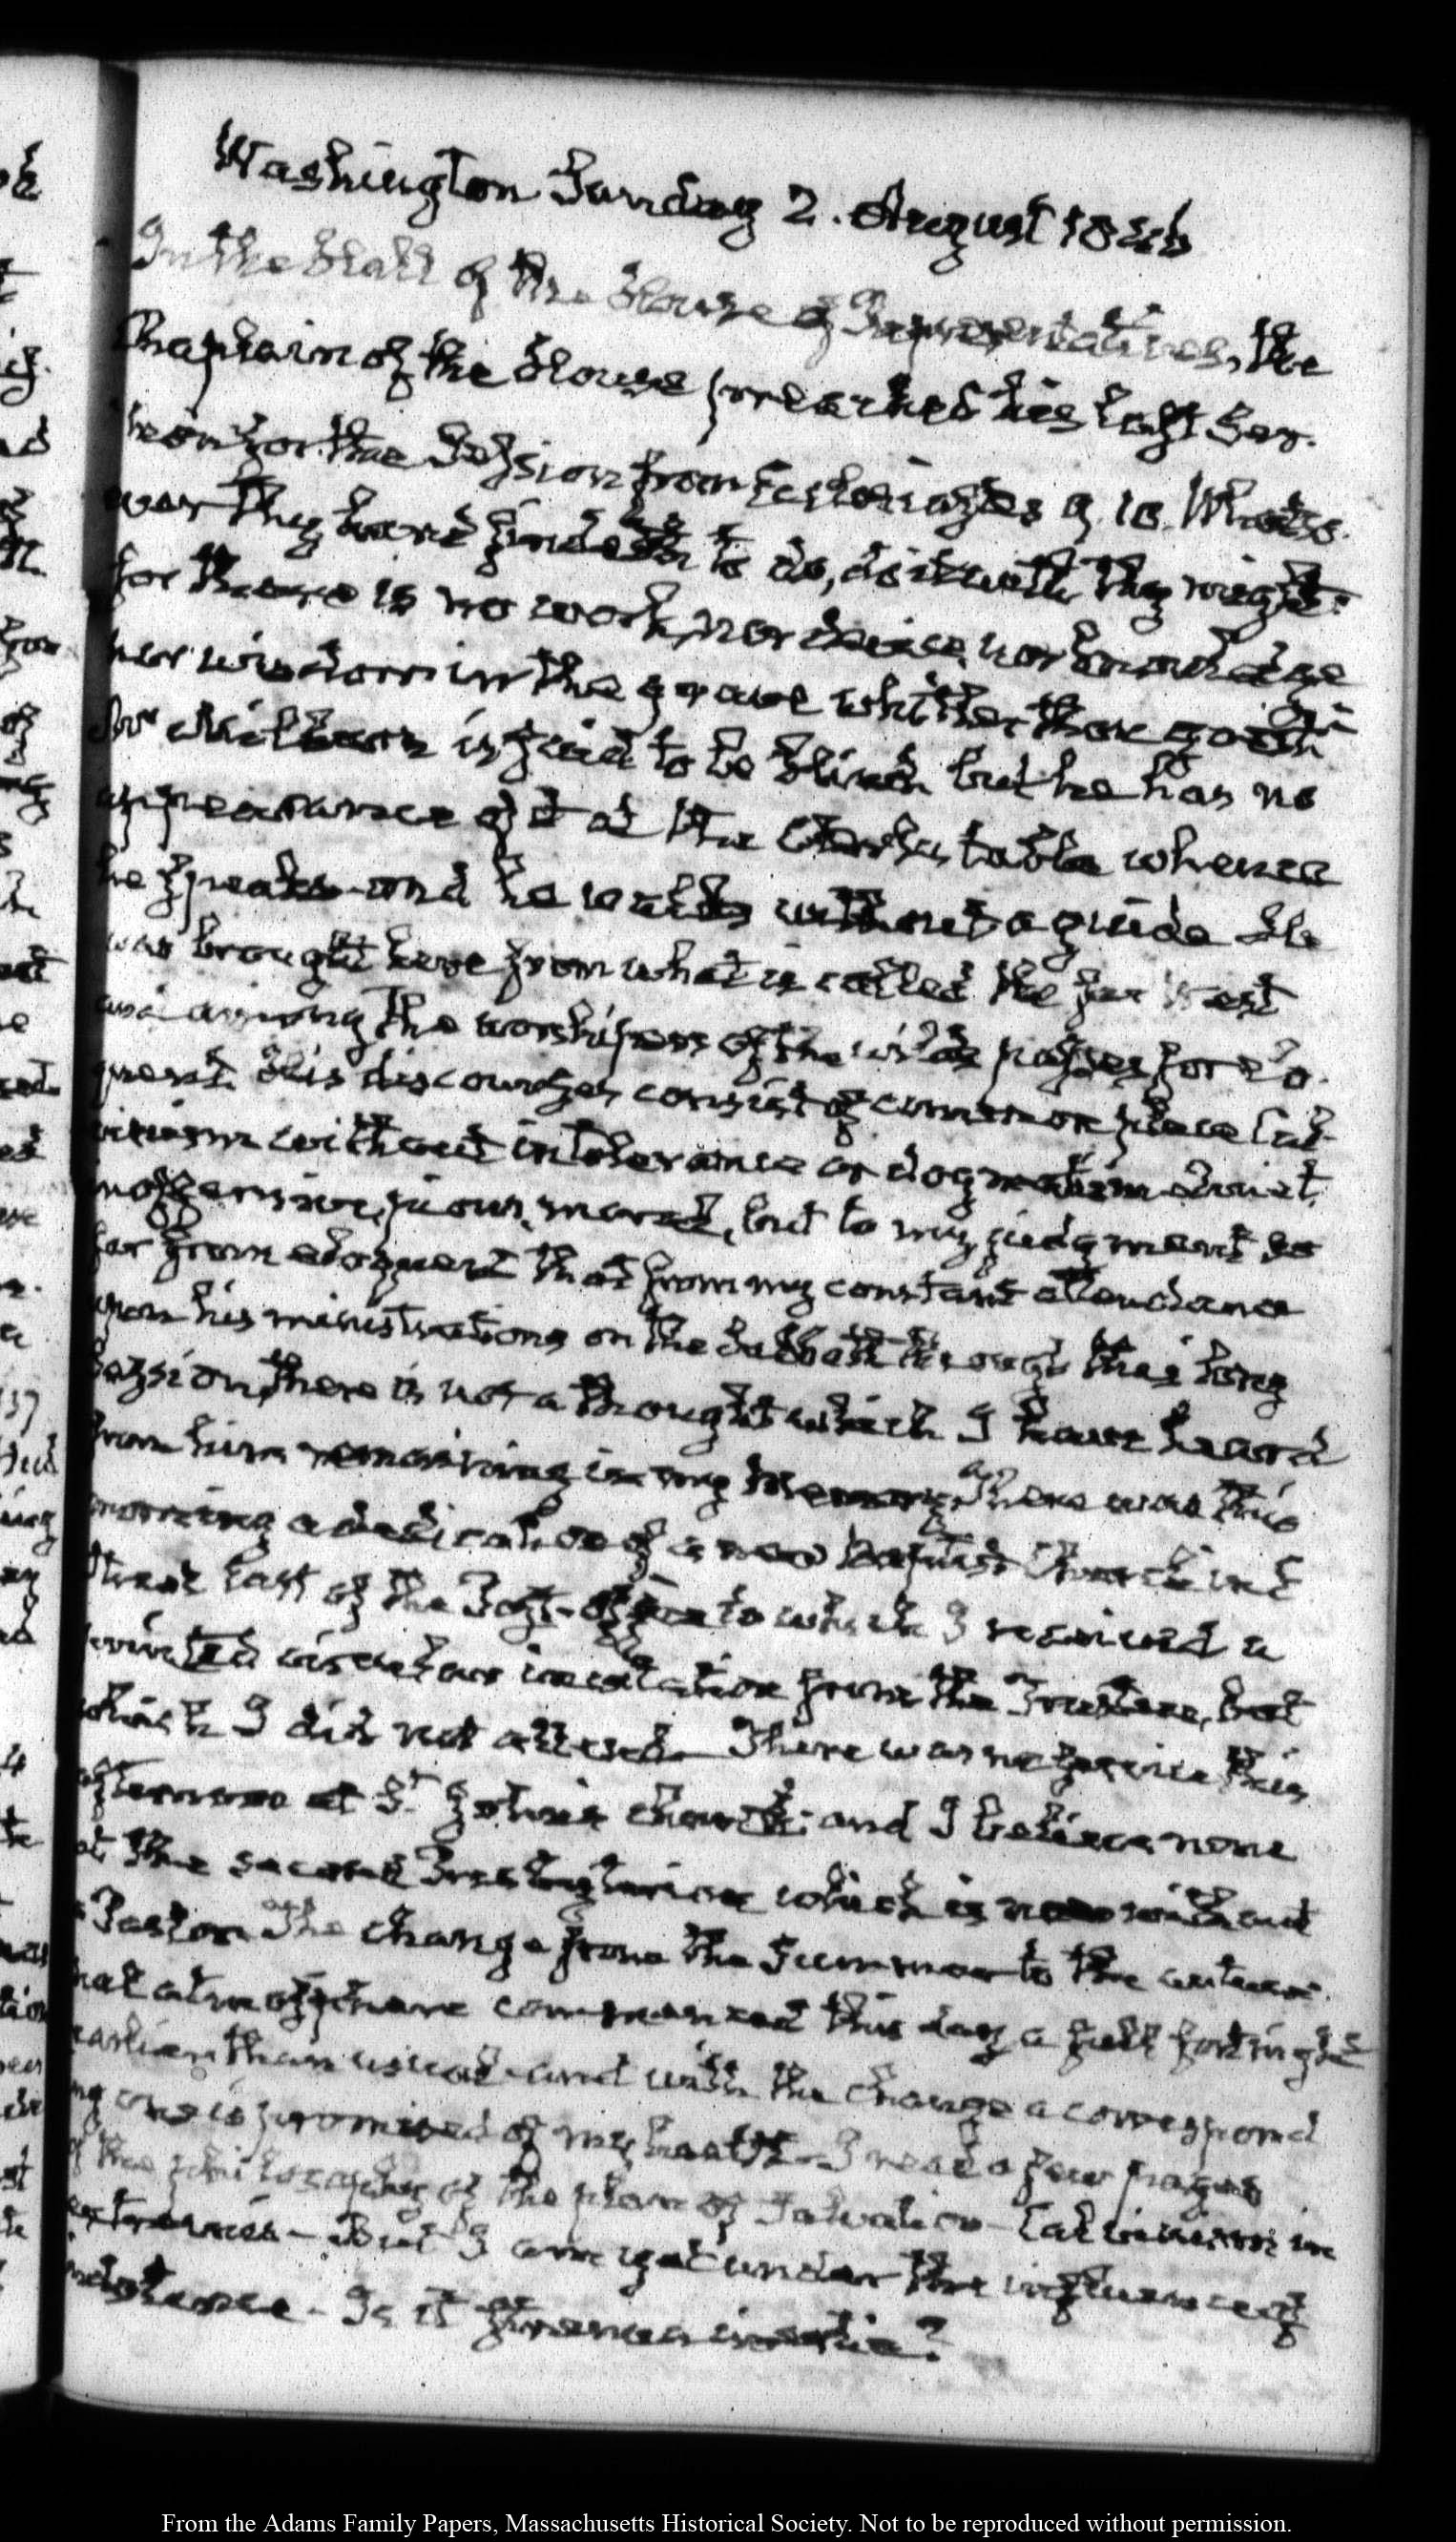 Washington Sunday 2. August 1846
In the Hall of the House of Representatives, the
Chaplain of the House preached his last Ser-
mon for the Session from Ecclesiastes 9. 10. Whatso-
ever thy hand findeth to do, do it with thy might:
for there is no work, nor device, nor knowledge
nor wisdom in the grave whither thou goest
Mr Milburn is said to be blind but he has no
appearance of it at the Clerks table whence
he speaks and he walks without a guide He
was brought here from what is called the far West
and among the worshipers of the wild passes for elo-
quent. His discourses consist of common place Cal-
vinism without intolerance or dogmatism quiet,
inoffensive, pious, moral, but to my judgment so
far from eloquent that from my constant attendance
upon his ministrations on the Sabbath through this long
Session, there is not a thought which I have heard
from him remaining in my Memory. There was this
morning a dedication of a new baptist Church in E
Street East of the Post-Office to which I received a
printed circular invitation from the Trustees, but
which I did not attend. There was no service this
afternoon at St. John's church; and I believe none
at the second Presbyterian which is now without
a Pastor. The change from the Summer to the autum-
nal atmosphere commenced this day a full fortnight
earlier than usual and with the change a correspond
ing one is promised of my health. I read a few pages
of the philosophy of the plan of Salvation - Calvinism in
extremis - But I am yet under the influence of
indolence - Is it strenua inertia?
From the Adams Family Papers, Massachusetts Historical Society. Not to be reproduced without permission.